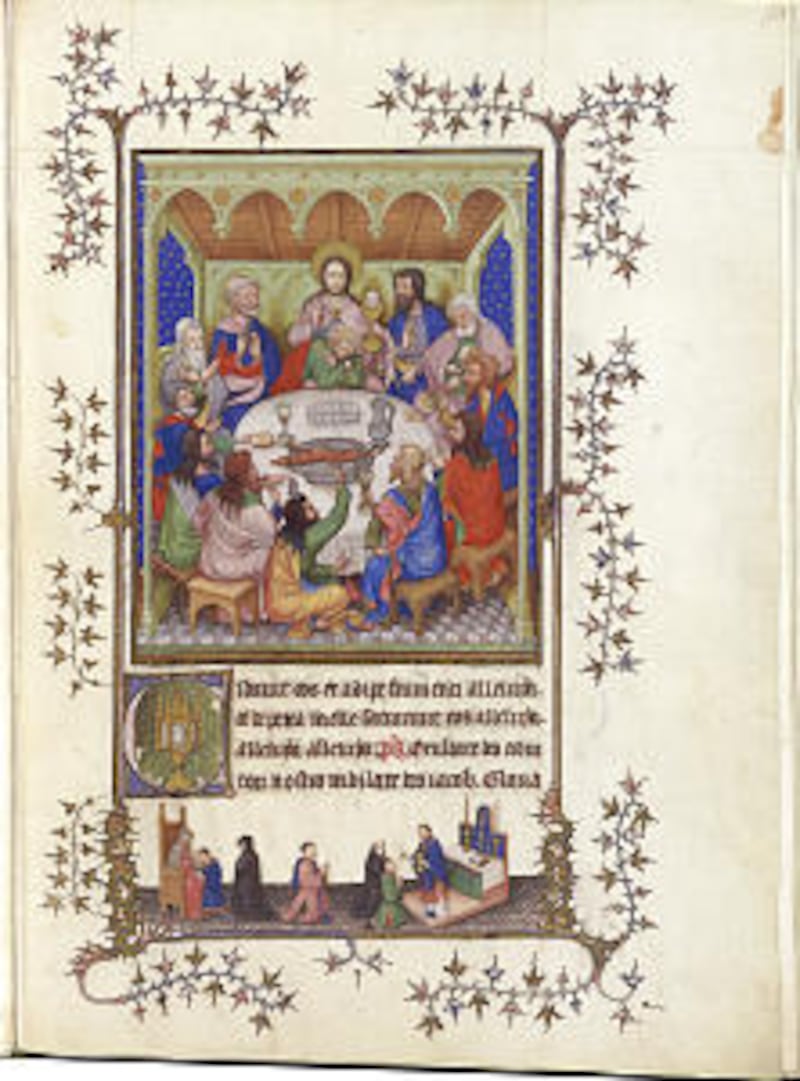 Cibauit eos ex adipe frumenti alleluia.
et de petra melle saturauit eos alleluia.
alleluia. alleluia. Exultate deo adiu
tori nostro iubilate deo iacob. Gloria